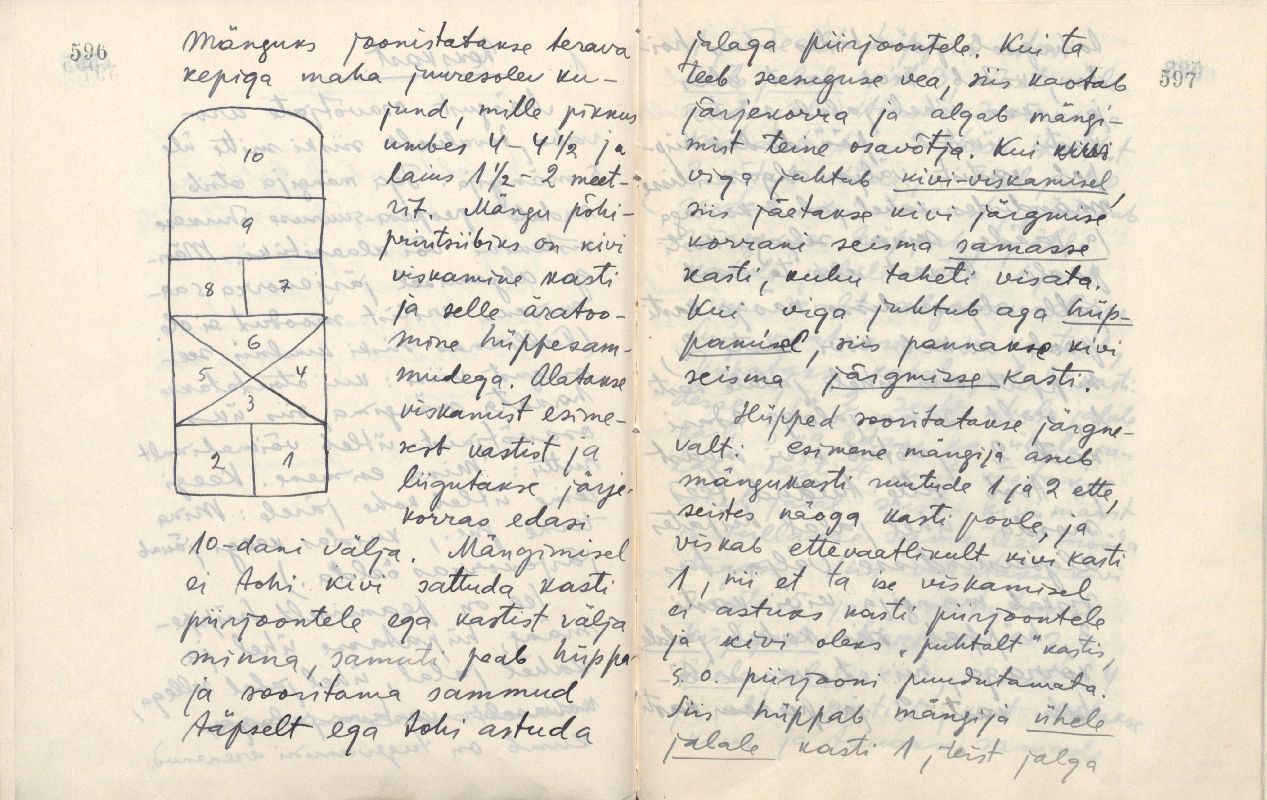 596
Mänguks joonistatakse terava
kepiga maha juuresolev ku-
jund, mille pikkus
umbes 4-4 1/2 ja
laius 1 1/2-2 meet-
rit. Mängu põhi-
printsiibiks on kivi
viskamine kasti
ja selle äratoo-
mine hüppesam-
mudega. Alatakse
viskamist esime-
sest kastist ja
liigutakse järje-
korras edasi
10
9
8 7
6
5 4
3
2 1
10-dani välja. Mängimisel
ei tohi kivi sattuda kasti
piirjoontele ega kastist välja
minna, samuti peab hüppa-
ja sooritama sammud
täpselt ega tohi astuda
597
jalaga piirjoontele. Kui ta
teeb seesuguse vea, siis kaotab
järjekorra ja algab mängi-
mist teine osavõtja. Kui
viga juhtub kivi-viskamisel,
siis jäetakse kivi järgmise
korrani seisma samasse
kasti, kuhu taheti visata.
Kui viga juhtub aga hüp-
pamisel, siis pannakse kivi
seisma järgmisse kasti.
Hüpped sooritatakse järgne-
valt: esimene mängija asub
mängukasti ruutude 1 ja 2 ette,
seistes näoga kasti poole, ja
viskab ettevaatlikult kivi kasti
1, nii et ta ise viskamisel
ei astuks kasti piirjoontele
ja kivi oleks „puhtalt" kastis,
s.o. piirjooni puudutamata.
Siis hüppab mängija ühele
jalale kasti 1, teist jalga